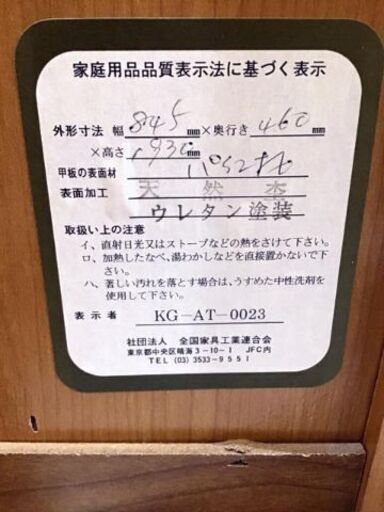 家庭用品品質表示法に基づく表示
外形寸法 幅 845 mm×奥行き 460 mm
×高さ 1930 mm
甲板の表面材
表面加工 天然杢
ウレタン塗装
取扱い上の注意
イ、直射日光又はストーブなどの熱をさけて下さい。
ロ、加熱したなべ、湯わかしなどを直接置かないで下さい。
ハ、著しい汚れを落とす場合は、うすめた中性洗剤を
使用して下さい。
表示者 KG-AT-0023
社団法人 全国家具工業連合会
東京都中央区晴海3-10-1 JFC内
TEL (03) 3533-9551